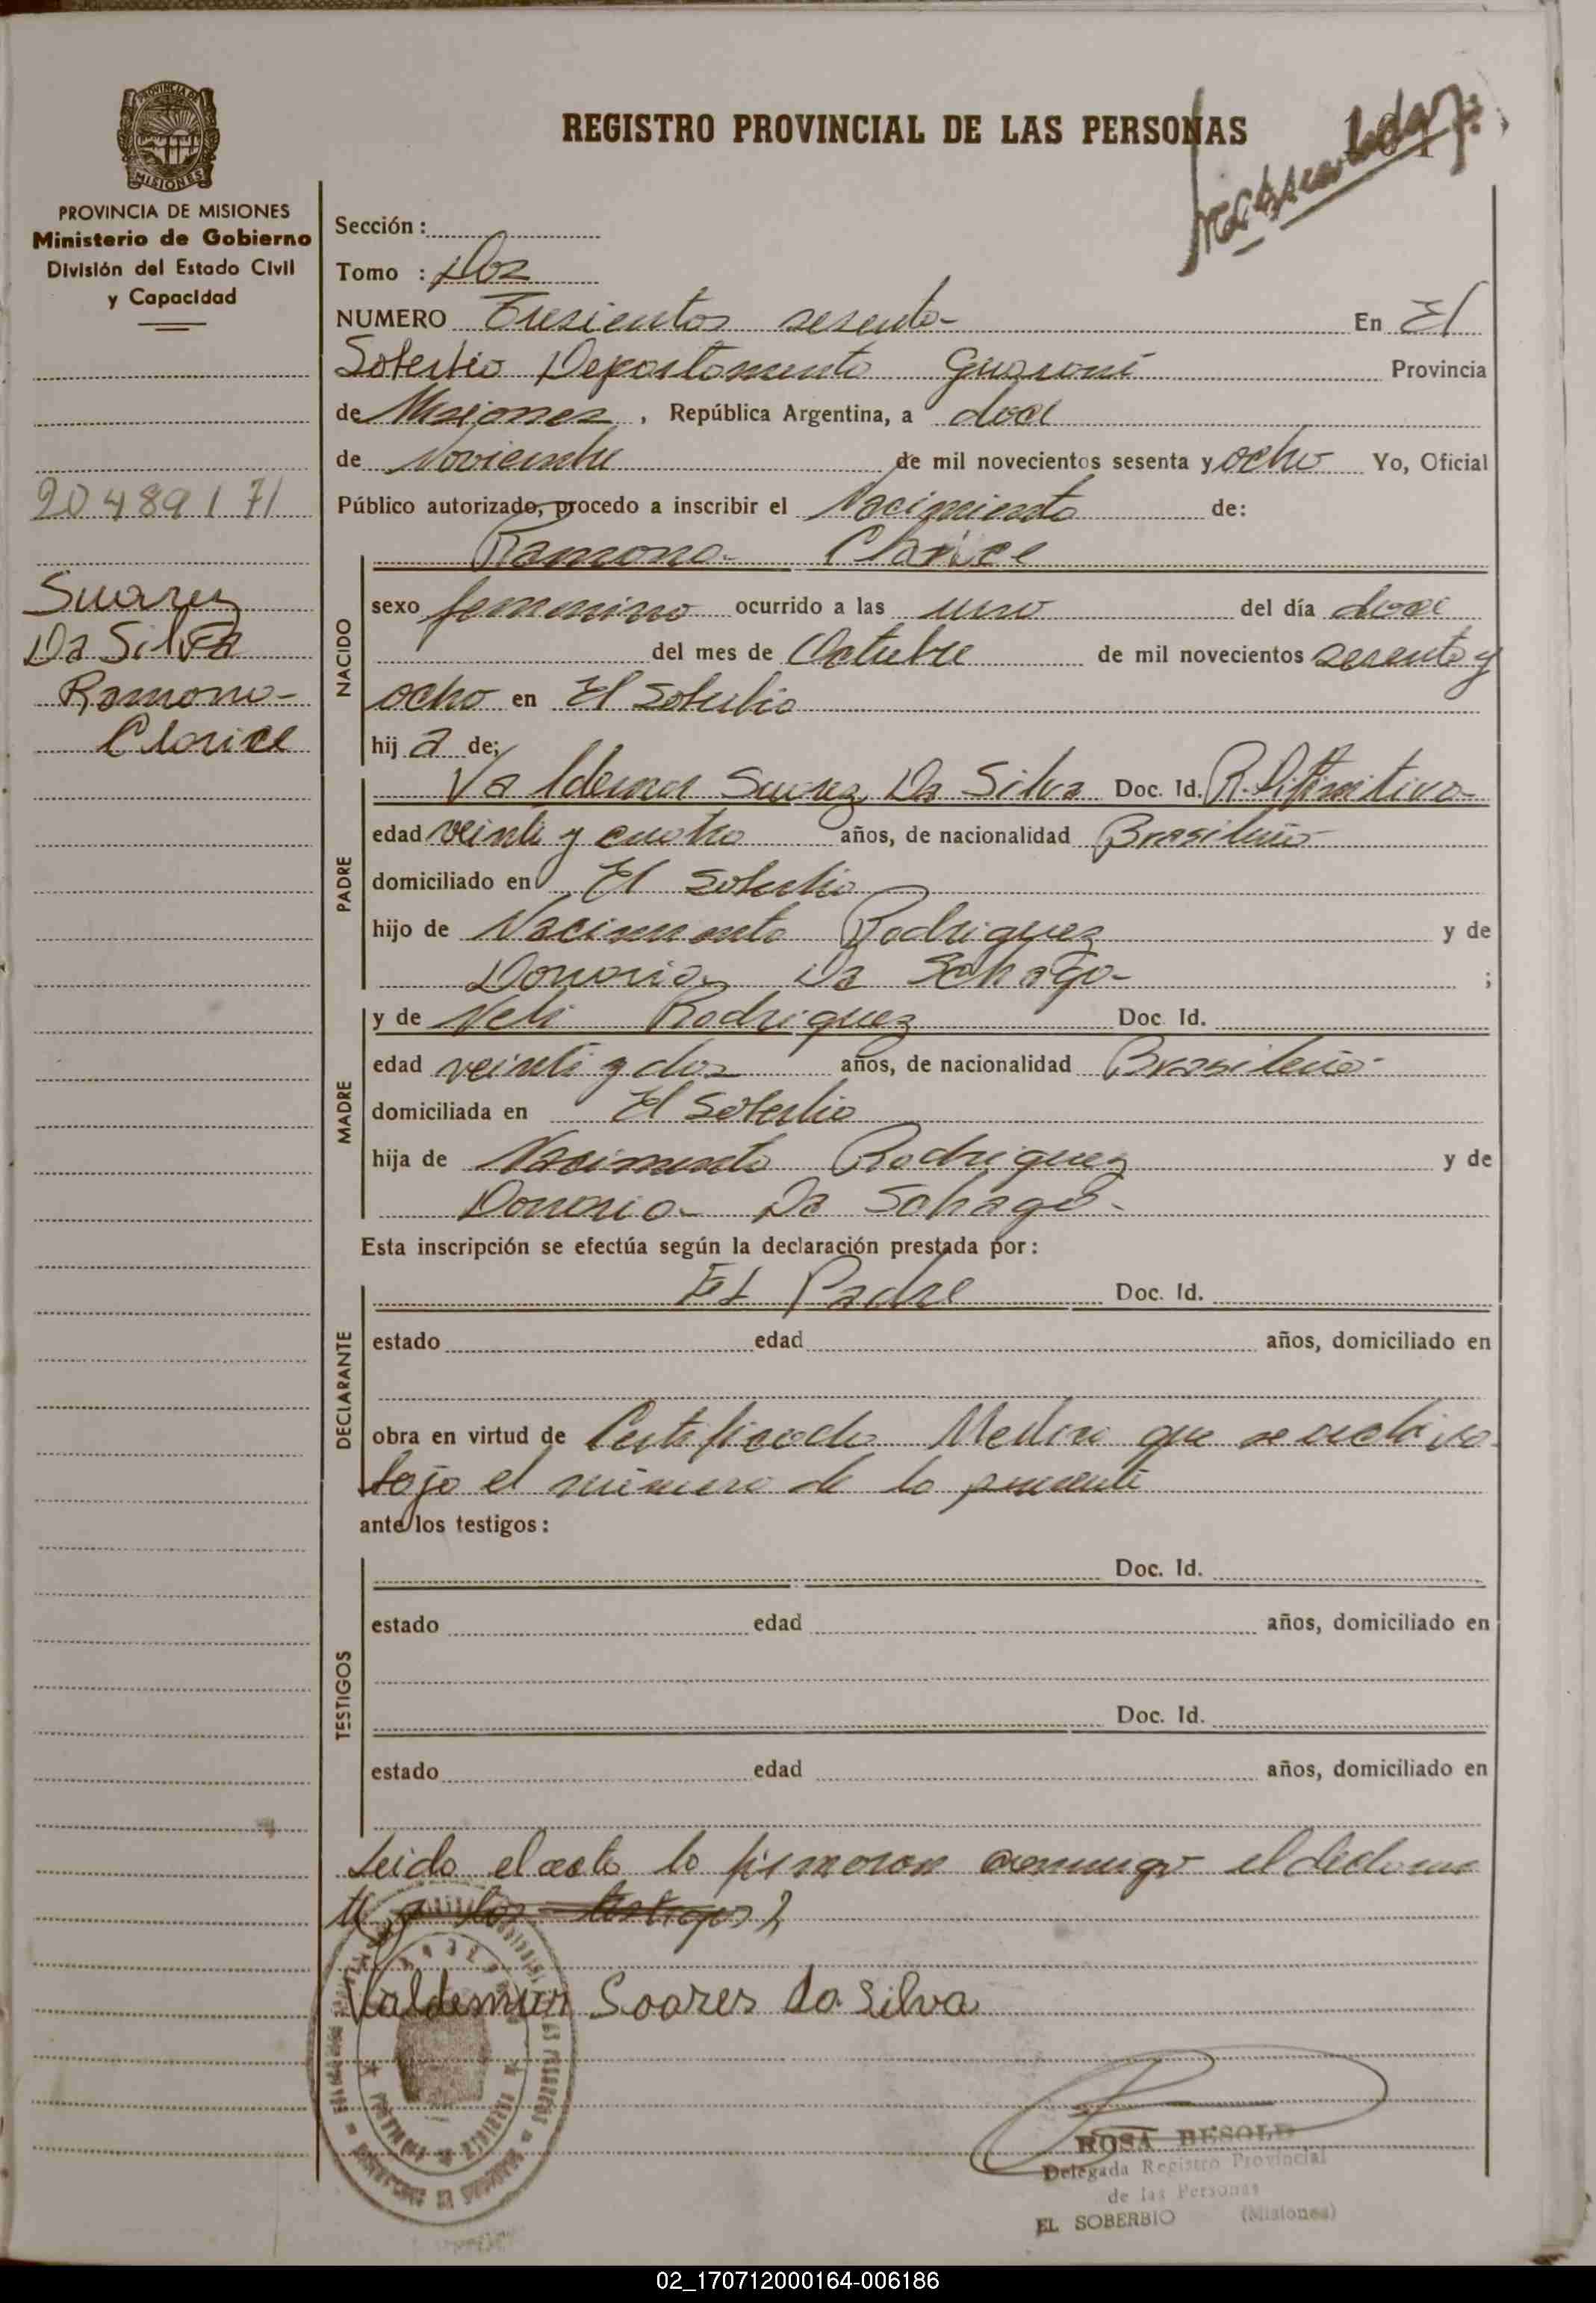 REGISTRO PROVINCIAL DE LAS PERSONAS
PROVINCIA DE MISIONES
Ministerio de Gobierno
División del Estado Civil
y Capacidad
20489171
Suarez
Da Silva
Ramona
Clarice
Sección :
Tomo : Dos
NUMERO Tresientos sesenta- En El
Soberbio Departamento Guarani Provincia
de Misiones , República Argentina, a doce
de Noviembre de mil novecientos sesenta y ocho Yo, Oficial
Público autorizado, procedo a inscribir el Nacimiento de:
Ramona Clarice
NACIDO
sexo femenino ocurrido a las una del día doce
del mes de Octubre de mil novecientos sesenta y
ocho en El Soberbio
hij a de;
PADRE
Valdemar Suarez Da Silva Doc. Id.
edad veinti y cuatro años, de nacionalidad Brasileña
domiciliado en El Soberbio
hijo de Nacimento Rodriguez y de
Da ;
MADRE
y de Neli Rodriguez Doc Id.
edad veinti y dos años, de nacionalidad Brasileña
domiciliada en El Soberbio
hija de Nacimento Rodriguez y de
Da
Esta inscripción se efectúa según la declaración prestada por :
DECLARANTE
El Padre Doc. Id.
estado edad años, domiciliado en
obra en virtud de Certificado Medico que se archiva
bajo el número de la presente
ante los testigos :
TESTIGOS
Doc. Id.
estado edad años, domiciliado en
Doc. Id.
estado edad años, domiciliado en
Leida el acta la firmaron conmigo el declaran
te y los testigos
Valdemar Soares da Silva
ROSA BESOLD
Delegada Registro Provincial
de las Personas
EL SOBERBIO (Misiones)
02_170712000164-006186